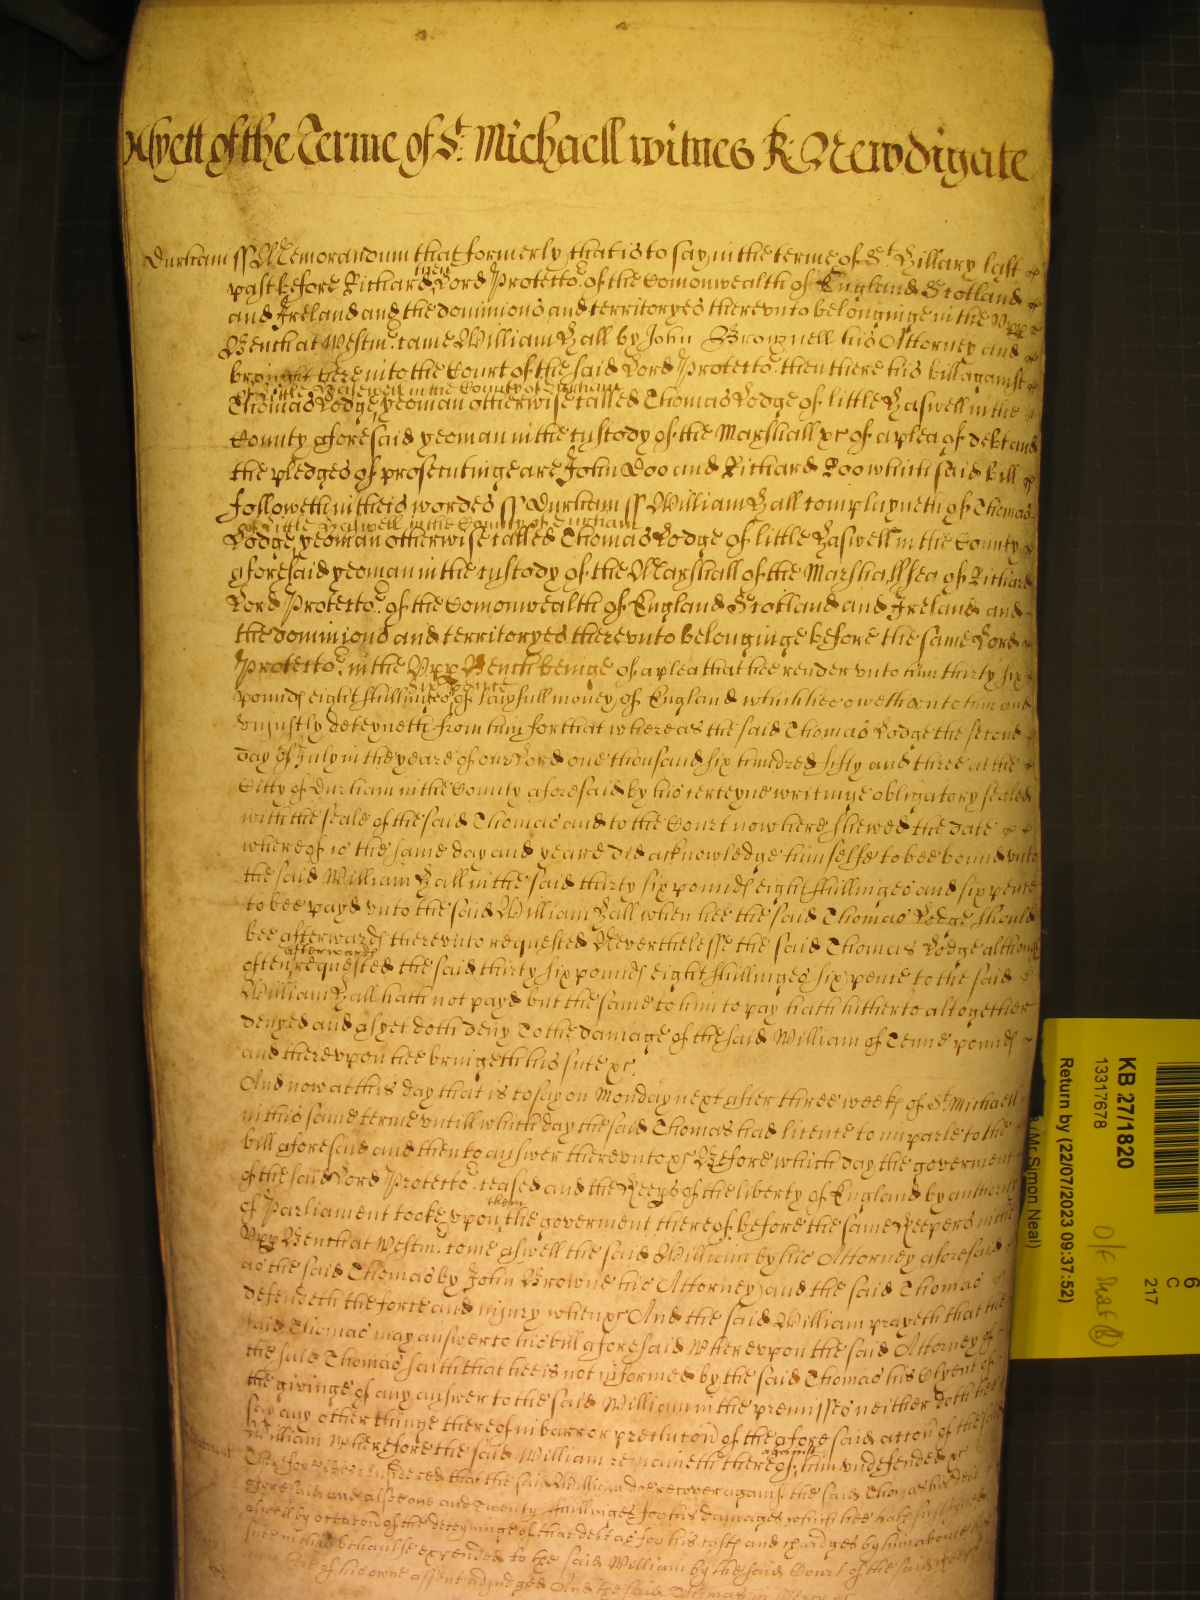 Asyett of the Terme of St. Michaell witnes R: Newdigate
Durham ss Memorandum that formerly that is to say in the terme of St. Hillary last
past before Richard then Lord Protector of the Comonwealth of England Scotland
and Ireland and the dominions and territoryes therevnto belonginge in the Vpp
Bench at Westmr. came William Hall by John Brownell his Attorney and
brought here into the Court of the said Lord Protector then there his bill against
of little Haswell in the County of Durham
Thomas Lodge yeoman otherwise called Thomas Lodge of little Haswell in the
County aforesaid yeoman in the custody of the Marshall &c of a plea of debt and
the pledges of prosecutinge are John Doo and Richard Roo which said bill
followeth in theis wordes ss Durham ss William Hall complayneth of Thomas
of little Haswell in the County of Durham
Lodge yeoman otherwise called Thomas Lodge of little Haswell in the County
aforesaid yeoman in the custody of the Marshall of the Marshallsea of Richard
Lord Protector of the Comonwealth of England Scotland and Ireland and
the dominions and territoryes therevnto belonginge before the same Lord
Protector in the Vpp Bench beinge of a plea that hee render vnto him thirty six
six pence
pounds eight shillinges of lawfull money of England which hee oweth vnto him and
vniustly deteyneth from him for that whereas the said Thomas Lodge the second
day of July in the yeare of our Lord one thousand six hundred fifty and three at the
Citty of Durham in the County aforesaid by his certeyne writinge obligatory sealed
with the seale of the said Thomas and to the Court now here shewed the date
whereof is the same day and yeare did acknowledge himselfe to bee bound vnto
the said William Hall in the said thirty six pounds eight shillinges and six pence
to bee payd vnto the said William Hall when hee the said Thomas Lodge should
bee afterwards therevnto requested Neverthelesse the said Thomas Lodge although
afterwards
often requested the said thirty six pounds eight shillinges six pence to the said
William Hall hath not payd but the same to him to pay hath hitherto altogether
denyed and as yet doth deny To the damage of the said William of Tenne pounds
and therevpon hee bringeth his sute &c.
And now at this day that is to say on Monday next after three weeks of St. Michaell
in this same terme vntill which day the said Thomas had licence to imparle to the
bill aforesaid and then to answer therevnto &c Before which day the goverment
of the said Lord Protector ceased and the Keepers of the liberty of England by authority
them
of Parliament tooke vpon the goverment thereof before the same Keepers in the
Vpp Bench at Westmr. come aswell the said William by his Attorney aforesaid
as the said Thomas by John Browne his Attorney and the said Thomas
defendeth the force and iniury when &c And the said William prayeth that the
said Thomas may answer to his bill aforesaid Wherevpon the said Attorney of
the said Thomas saith that hee is not informed by the said Thomas his Clyent of
the givinge of any answer to the said William in the premisses neither doth hee
say any other thinge thereof in barr or preclucon of the aforesaid accon of the said
against
William Wherefore the said William remaineth thereof him vndefended &c
Therefore it is considered that the said William doe recover against the said Thomas his debt
aforesaid and alsoe one and Twenty shillinges for his damages which hee hath susteyned
aswell by occacon of the deteyninge of that debt as for his costs and chardges by him about his
sute in this behaulfe expended to the said William by the said Court of the said Keepers
here of his owne assent adjudged And the said Thomas in Mercy &c
KB 27/1820
13317678
Return by (22/07/2023 09:37:52)
Mr Simon Neal)
6
C
217